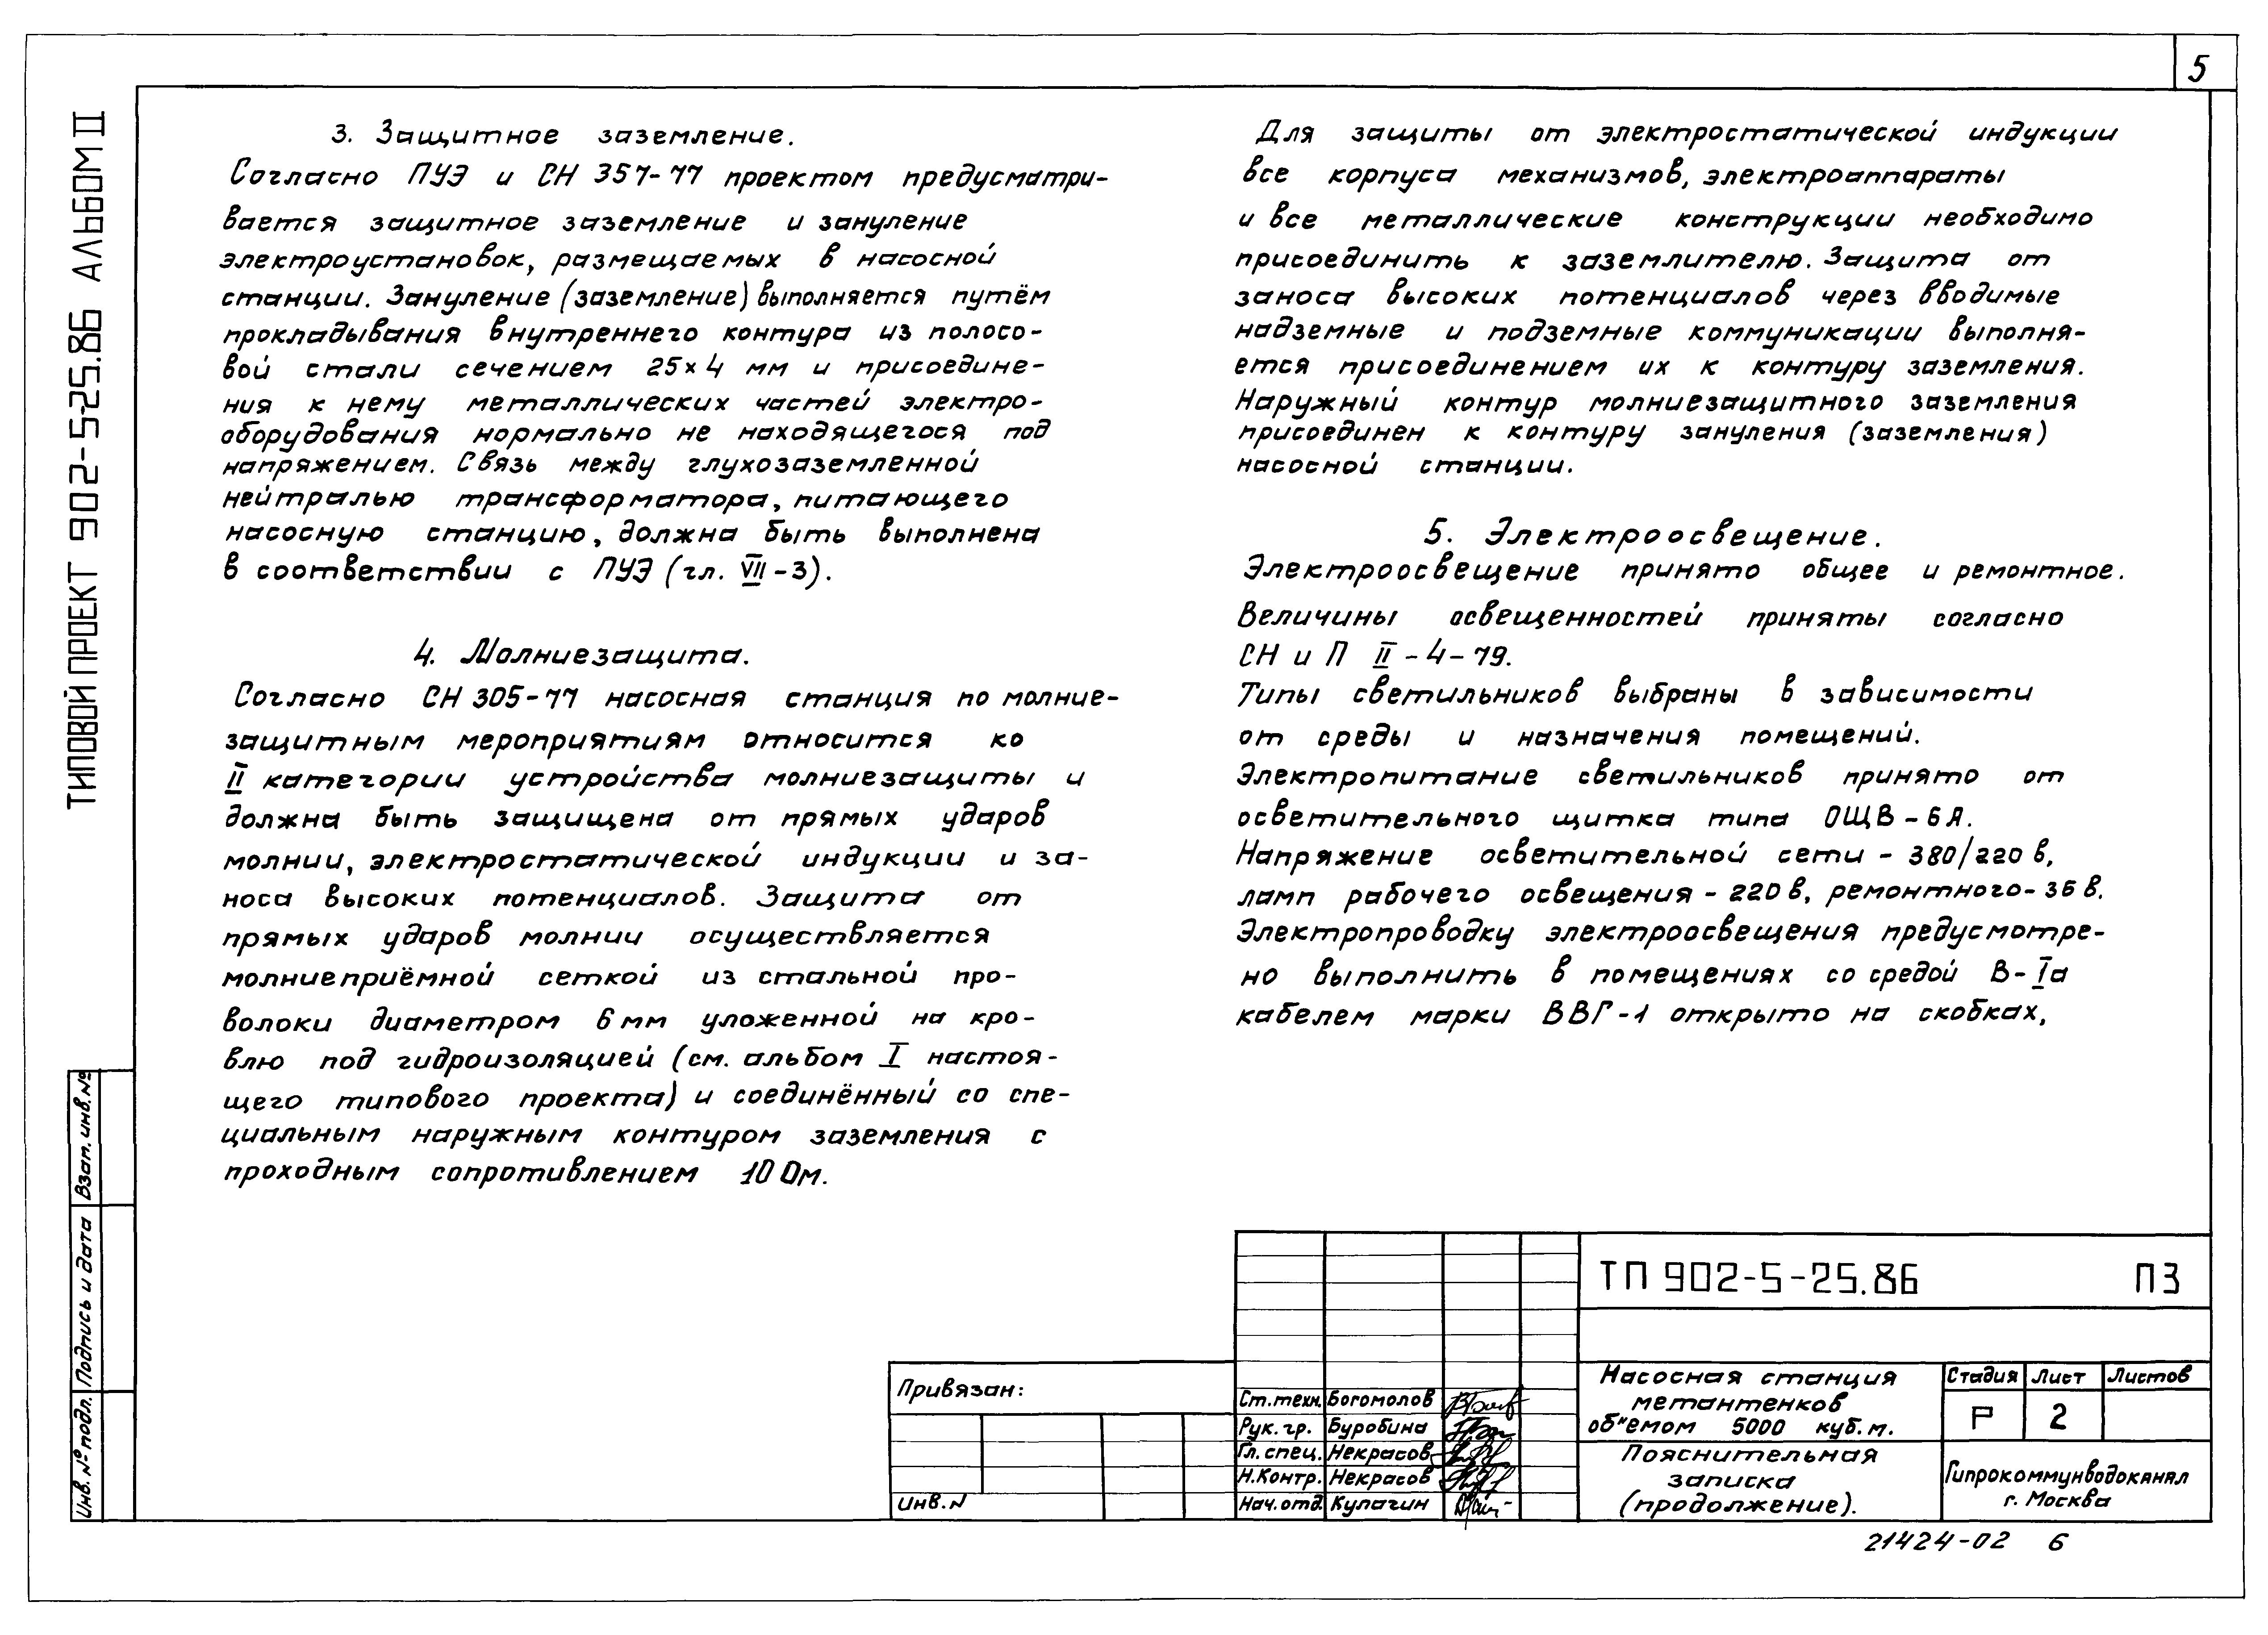 5
ТИПОВОЙ ПРОЕКТ 902-5-25.86 АЛЬБОМ II
3. Защитное заземление.
Согласно ПУЭ и СН 357-77 проектом предусматри-
вается защитное заземление и зануление
электроустановок, размещаемых в насосной
станции. Зануление (заземление) выполняется путём
прокладывания внутреннего контура из полосо-
вой стали сечением 25×4 мм и присоедине-
ния к нему металлических частей электро-
оборудования нормально не находящегося под
напряжением. Связь между глухозаземленной
нейтралью трансформатора, питающего
насосную станцию, должна быть выполнена
в соответствии с ПУЭ (гл. VII-3).
4. Молниезащита.
Согласно СН 305-77 насосная станция по молние-
защитным мероприятиям относится ко
II категории устройства молниезащиты и
должна быть защищена от прямых ударов
молнии, электростатической индукции и за-
носа высоких потенциалов. Защита от
прямых ударов молнии осуществляется
молниеприёмной сеткой из стальной про-
волоки диаметром 6 мм уложенной на кро-
влю под гидроизоляцией (см. альбом I настоя-
щего типового проекта) и соединённый со спе-
циальным наружным контуром заземления с
проходным сопротивлением 10 Ом.
Для защиты от электростатической индукции
все корпуса механизмов, электроаппараты
и все металлические конструкции необходимо
присоединить к заземлителю. Защита от
заноса высоких потенциалов через вводимые
надземные и подземные коммуникации выполня-
ется присоединением их к контуру заземления.
Наружный контур молниезащитного заземления
присоединен к контуру зануления (заземления)
насосной станции.
5. Электроосвещение.
Электроосвещение принято общее и ремонтное.
Величины освещенностей приняты согласно
СН и П II-4-79.
Типы светильников выбраны в зависимости
от среды и назначения помещений.
Электропитание светильников принято от
осветительного щитка типа ОЩВ-6А.
Напряжение осветительной сети - 380/220 в,
ламп рабочего освещения - 220 в, ремонтного - 36 в.
Электропроводку электроосвещения предусмотре-
но выполнить в помещениях со средой В-Iа
кабелем марки ВВГ-1 открыто на скобках,
Взам. инв. №
Подпись и дата
Инв. № подл.
Привязан:
Инв. N
Ст.техн. Богомолов
Рук. гр. Буробина
Гл. спец. Некрасов
Н.Контр. Некрасов
Нач. отд. Кулагин
ТП 902-5-25.86 ПЗ
Насосная станция
метантенков
об"емом 5000 куб.м.
Стадия Лист Листов
Р 2
Пояснительная
записка
(продолжение).
Гипрокоммунводоканал
г. Москва
21424-02 6